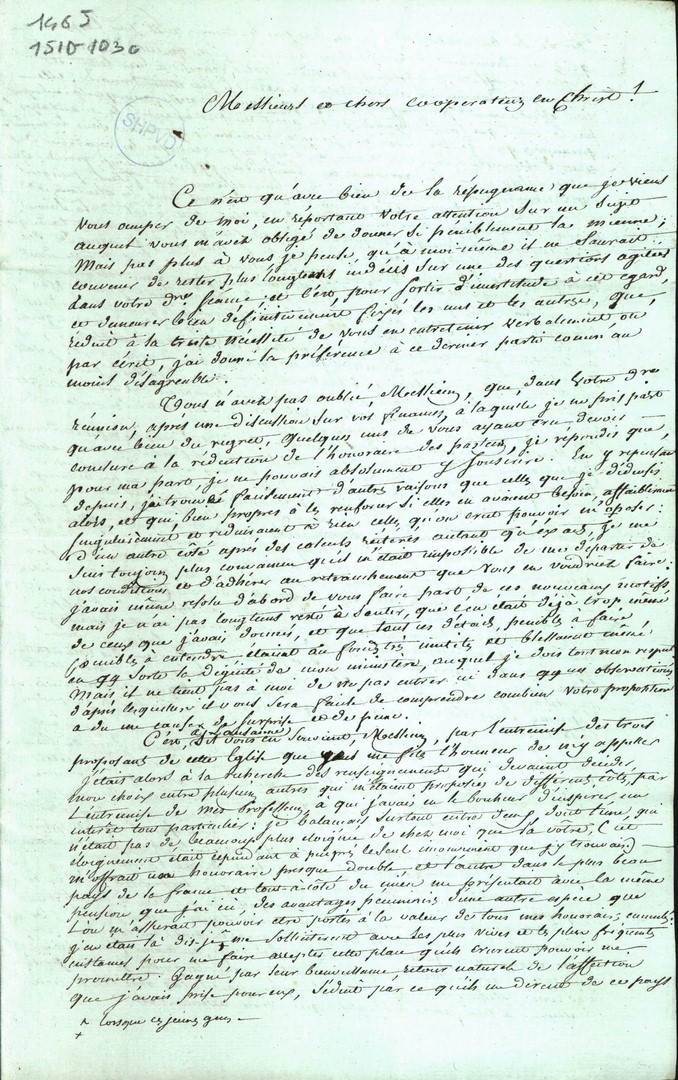 1465
1510-1030
SHPVD
Messieurs et chers coopérateurs en Christ !
Ce n'est qu'avec bien de la répugnance que je viens
vous occuper de moi, en reportant votre attention sur un sujet
auquel vous m'avez obligé de donner si péniblement la mienne;
Mais pas plus à vous je pense, qu'à moi-même il ne saurait
convenir de rester plus longtems indécis sur une des questions agitées
dans votre dre séance, et c'est pour sortir d'incertitude à cet égard,
et demeurer bien définitivement fixés les uns et les autres, que,
réduit à la triste nécessité de vous en entretenir verbalement ou
par écrit, j'ai donné la préférence à ce dernier parti comme au
moins désagréable.
Vous n'avez pas oublié, Messieurs, que, dans votre dre
réunion, après une discussion sur vos finances, à laquelle je ne pris part
qu'avec bien du regret, quelques uns de vous ayant cru devoir
conclure à la réduction de l'honoraire des pasteurs, je répondis que,
pour ma part, je ne pouvais absolument y souscrire. En y repensant
depuis, j'ai trouvé facilement d'autres raisons que celles que je déduisis
alors, et qui, bien propres à les renforcer si elles en avaient besoin, affaiblissent
singulièrement et réduiraient à rien celles qu'on crut pouvoir m'opposer:
D'un autre coté après des calculs réitérés autant qu'exacts, je me
suis toujours plus convaincu qu'il m'était impossible de me départir de
nos conditions et d'adhérer au retranchement que vous en voudriez faire:
j'avais même résolu d'abord de vous faire part de ces nouveaux motifs,
mais je n'ai pas longtems resté à sentir, que c'en était déjà trop même
de ceux que j'avais donnés, et que tout ces détails, pénibles à faire
pénibles à entendre étaient au fond très inutiles et blessaient même
en qq sorte la dignité de mon ministère, auquel je dois tout mon respect
Mais il ne tient pas à moi de ne pas entrer ici dans qq unes observations
d'après lesquelles il vous sera facile de comprendre combien votre proposition
a dû me causer de surprise et de peine.
C'est, s'il vous en souvient, Messieurs, à Lausanne, par l'entremise des trois
proposans de cette Eglise que vous me fites l'honneur de m'y appeller
j'étais alors à la recherche des renseignements qui devaient décider
mon choix entre plusieurs autres qui m'étaient proposés de différens côtés, par
l'entremise de mes Professeurs, à qui j'avais eu le bonheur d'inspirer un
intérêt tout particulier; je balançais surtout entre deux dont l'une, qui
n'était pas de beaucoup plus éloignée de chez moi que la vôtre, (cet
éloignement était cependant à peu près le seul inconvénient que j'y trouvais)
m'offrait un honoraire presque double et l'autre dans le plus beau
pays de la france et tout-à-côté du mien me présentait avec la même
pension, que j'ai ici, des avantages pécuniaires d'une autre espèce que
l'on m'assurait pouvoir être portés à la valeur de tous mes honoraires cumulés:
j'en étais là dis-je, ^ me sollicitèrent avec les plus vives et les plus fréquentes
instances pour me faire accepter cette place qu'ils crurent pouvoir me
promettre. Gagné par leur bienveillance retour naturel de l'affection
que j'avais prise pour eux, séduit par ce qu'ils me dirent de ce pays
^ lorsque ces jeunes gens –
+